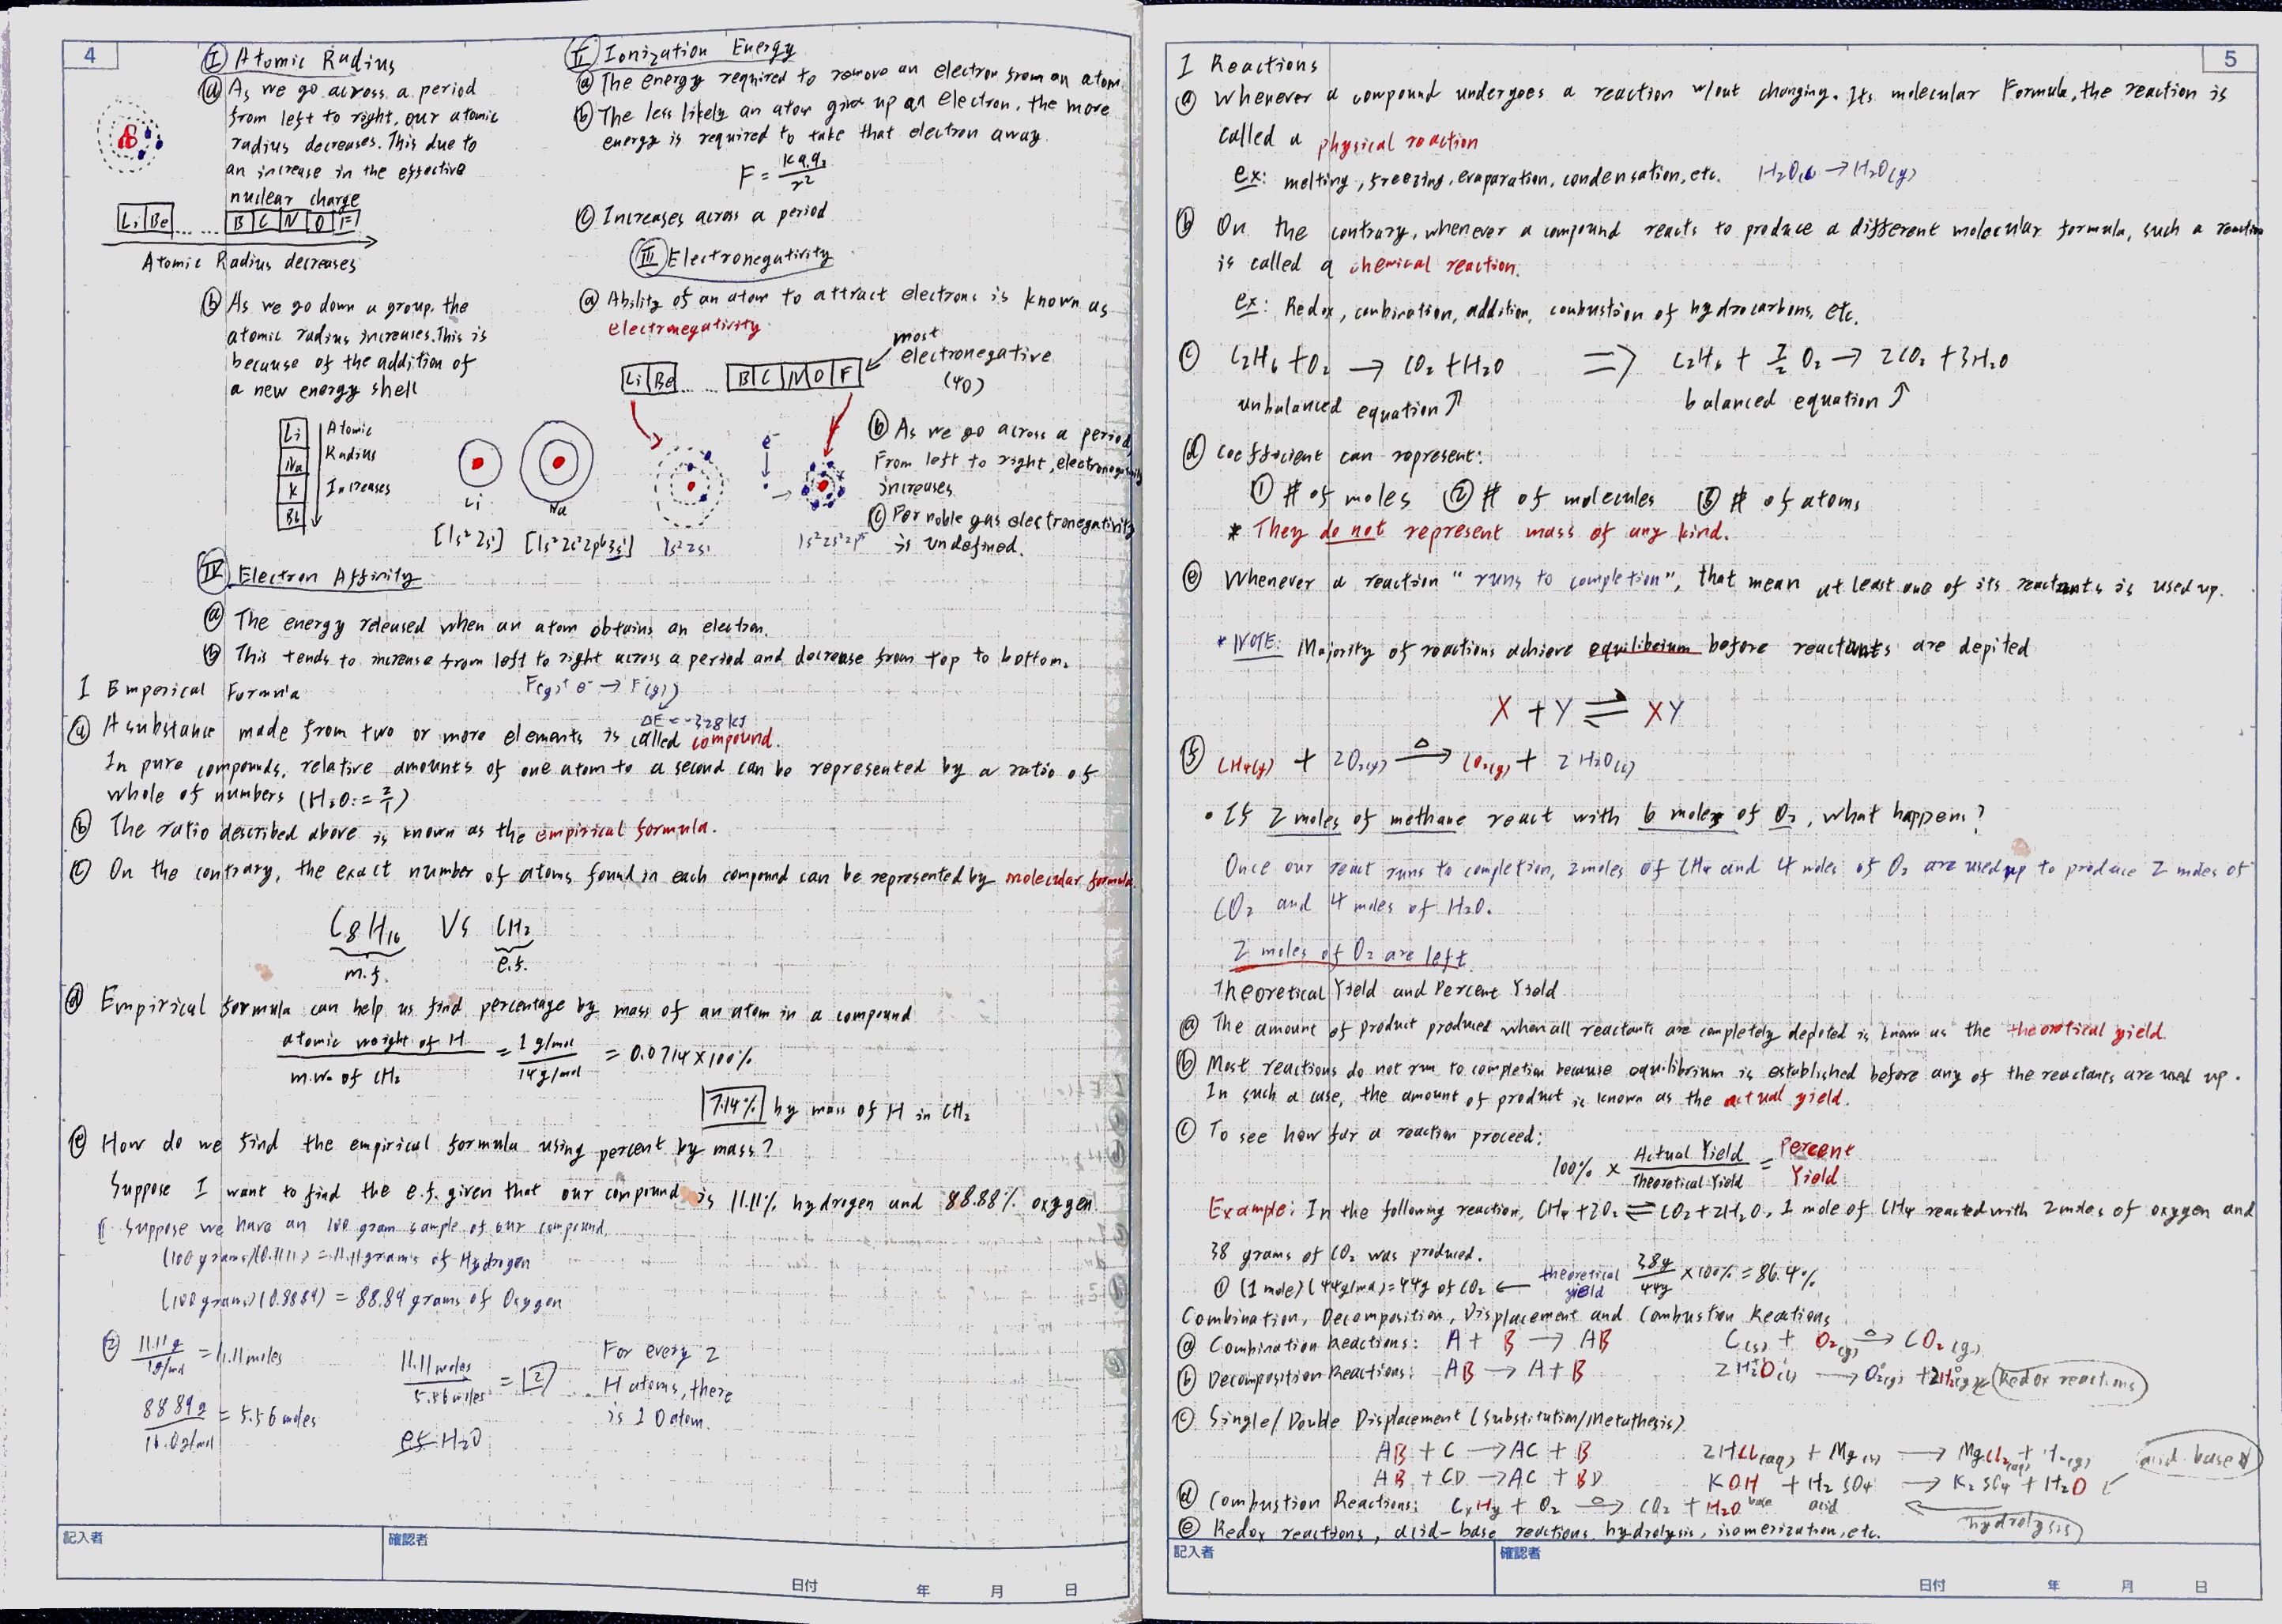 4
I Atomic Radius
ⓐ As we go across a period
from left to right, our atomic
radius decreases. This due to
an increase in the effective
nuclear charge
Li Be ... .. B C N O F
Atomic Radius decreases
ⓑ As we go down a group, the
atomic radius increases. This is
because of the addition of
a new energy shell
Li
Na
K
Rb
Atomic
Radius
Increases
Li
Na
[1s² 2s¹] [1s²2s²2p⁶3s¹]
II Ionization Energy
ⓐ The energy required to remove an electron from an atom
ⓑ The less likely an atom give up an electron, the more
energy is required to take that electron away.
F = kq₁q₂/r²
ⓒ Increases across a period
III Electronegativity
ⓐ Ability of an atom to attract electrons is known as
electronegativity
most
electronegative
(4.0)
Li Be ... .. B C N O F
e⁻
1s²2s¹
1s²2s²2p⁵
ⓑ As we go across a period
From left to right, electronegativity
increases
ⓒ For noble gas electronegativity
is undefined.
IV Electron Affinity
ⓐ The energy released when an atom obtains an electron.
ⓑ This tends to increase from left to right across a period and decrease from top to bottom.
F(g) + e⁻ → F⁻(g)
ΔE = -328 kJ
I Emperical Formula
ⓐ A substance made from two or more elements is called compound.
In pure compounds, relative amounts of one atom to a second can be represented by a ratio of
whole of numbers (H₂O := 2/1)
ⓑ The ratio described above is known as the empirical formula.
ⓒ On the contrary, the exact number of atoms found in each compound can be represented by molecular formula.
C₈H₁₆ Vs CH₂
m.f. e.f.
ⓓ Empirical formula can help us find percentage by mass of an atom in a compound
atomic weight of H / m.w. of CH₂ = 1 g/mol / 14 g/mol = 0.0714 × 100%
7.14% by mass of H in CH₂
ⓔ How do we find the empirical formula using percent by mass?
Suppose I want to find the e.f. given that our compound is 11.11% hydrogen and 88.88% oxygen
① Suppose we have an 100 gram sample of our compound.
(100 grams)(0.1111) = 11.11 grams of Hydrogen
(100 grams)(0.8889) = 88.89 grams of Oxygen
② 11.11 g / 1 g/mol = 11.11 moles
88.89 g / 16.0 g/mol = 5.56 moles
11.11 moles / 5.56 moles = 2
ef H₂O
For every 2
H atoms, there
is 1 O atom.
記入者 確認者
日付 年 月 日
5
I Reactions
ⓐ Whenever a compound undergoes a reaction w/out changing. Its molecular Formula, the reaction is
called a physical reaction
ex: melting, freezing, evaparation, condensation, etc. H₂O(l) → H₂O(g)
ⓑ On the contrary, whenever a compound reacts to produce a different molecular formula, such a reaction
is called a chemical reaction.
ex: Redox, combination, addition, combustion of hydrocarbons, etc.
ⓒ C₂H₆ + O₂ → CO₂ + H₂O ⇒ C₂H₆ + 7/2 O₂ → 2CO₂ + 3H₂O
unbalanced equation ↑ balanced equation ↑
ⓓ Coefficient can represent:
① # of moles ② # of molecules ③ # of atoms
* They do not represent mass of any kind.
ⓔ Whenever a reaction "runs to completion", that mean at least one of its reactants is used up.
* NOTE: Majority of reactions achieve equilibrium before reactants are depited
X + Y ⇌ XY
ⓕ CH₄(g) + 2O₂(g) →Δ CO₂(g) + 2H₂O(g)
• If 2 moles of methane react with 6 moles of O₂, what happens?
Once our react runs to completion, 2 moles of CH₄ and 4 moles of O₂ are used up to produce 2 moles of
CO₂ and 4 moles of H₂O.
2 moles of O₂ are left
Theoretical Yield and Percent Yield
ⓐ The amount of product produced when all reactants are completely depited is known as the theoretical yield.
ⓑ Most reactions do not run to completion because equilibrium is established before any of the reactants are used up.
In such a case, the amount of product is known as the actual yield.
ⓒ To see how far a reaction proceed:
100% × Actual Yield / Theoretical Yield = Percent Yield
Example: In the following reaction, CH₄ + 2O₂ ⇌ CO₂ + 2H₂O, 1 mole of CH₄ reacted with 2 moles of oxygen and
38 grams of CO₂ was produced.
① (1 mole)(44g/mol) = 44g of CO₂ ← theoretical yield 38g/44g × 100% = 86.4%
Combination, Decomposition, Displacement and Combustion Reactions
ⓐ Combination Reactions: A + B → AB C(s) + O₂(g) →Δ CO₂(g)
ⓑ Decomposition Reactions: AB → A + B 2H₂O(l) → O₂(g) + 2H₂(g) Redox reactions
ⓒ Single/Double Displacement (Substitution/Metathesis)
AB + C → AC + B 2HCl(aq) + Mg(s) → MgCl₂(aq) + H₂(g) acid base
AB + CD → AC + BD KOH + H₂SO₄ → K₂SO₄ + H₂O
base acid
ⓓ Combustion Reactions: CxHy + O₂ →Δ CO₂ + H₂O
hydrolysis
ⓔ Redox reactions, acid-base reactions, hydrolysis, isomerization, etc.
記入者 確認者
日付 年 月 日